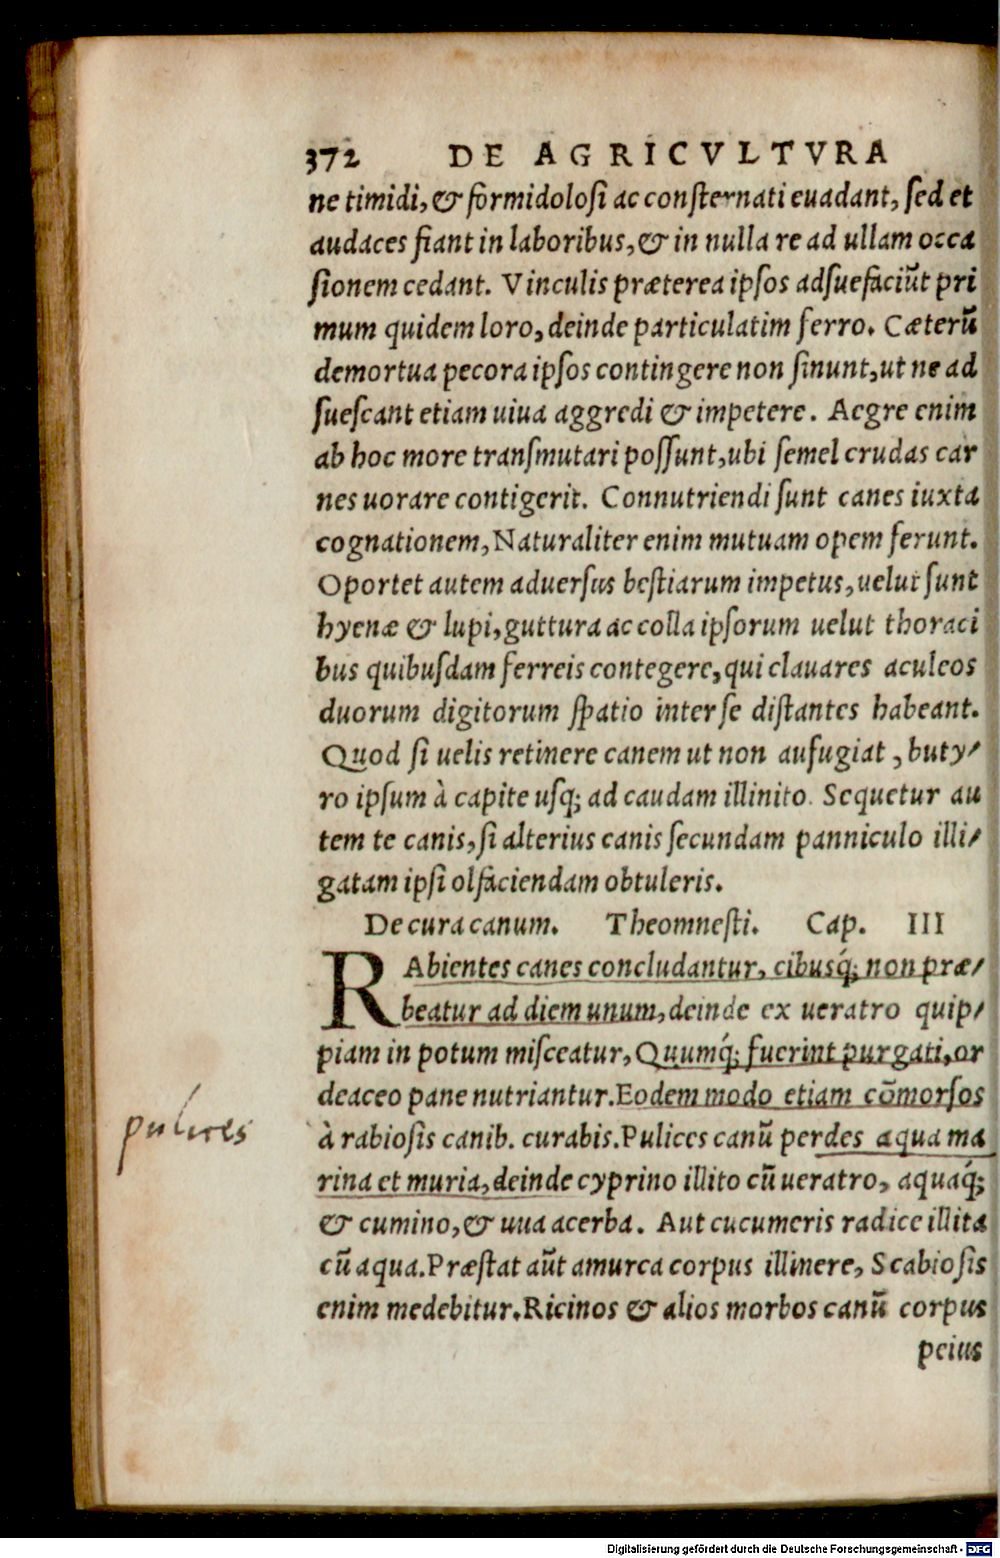 372 DE AGRICVLTVRA
ne timidi, & formidolosi ac consternati euadant, sed et
audaces fiant in laboribus, & in nulla re ad ullam occa
sionem cedant. Vinculis præterea ipsos adsuefaciūt pri
mum quidem loro, deinde particulatim ferro. Cæterū
demortua pecora ipsos contingere non sinunt, ut ne ad
suescant etiam uiua aggredi & impetere. Aegre enim
ab hoc more transmutari possunt, ubi semel crudas car
nes uorare contigerit. Connutriendi sunt canes iuxta
cognationem, Naturaliter enim mutuam opem ferunt.
Oportet autem aduersus bestiarum impetus, uelut sunt
hyenæ & lupi, guttura ac colla ipsorum uelut thoraci
bus quibusdam ferreis contegere, qui clauares aculeos
duorum digitorum spatio inter se distantes habeant.
Quod si uelis retinere canem ut non aufugiat, buty/
ro ipsum à capite usq; ad caudam illinito. Sequetur au
tem te canis, si alterius canis secundam panniculo illi/
gatam ipsi olfaciendam obtuleris.
De cura canum. Theomnesti. Cap. III
RAbientes canes concludantur, cibusq́; non præ/
beatur ad diem unum, deinde ex ueratro quip/
piam in potum misceatur, Quumq́; fuerint purgati, or
deaceo pane nutriantur. Eodem modo etiam cōmorsos
pulices
à rabiosis canib. curabis. Pulices canū perdes aqua ma
rina et muria, deinde cyprino illito cū ueratro, aquaq́;
& cumino, & uua acerba. Aut cucumeris radice illita
cū aqua. Præstat aūt amurca corpus illinere, Scabiosis
enim medebitur. Ricinos & alios morbos canū corpus
peius
Digitalisierung gefördert durch die Deutsche Forschungsgemeinschaft - DFG